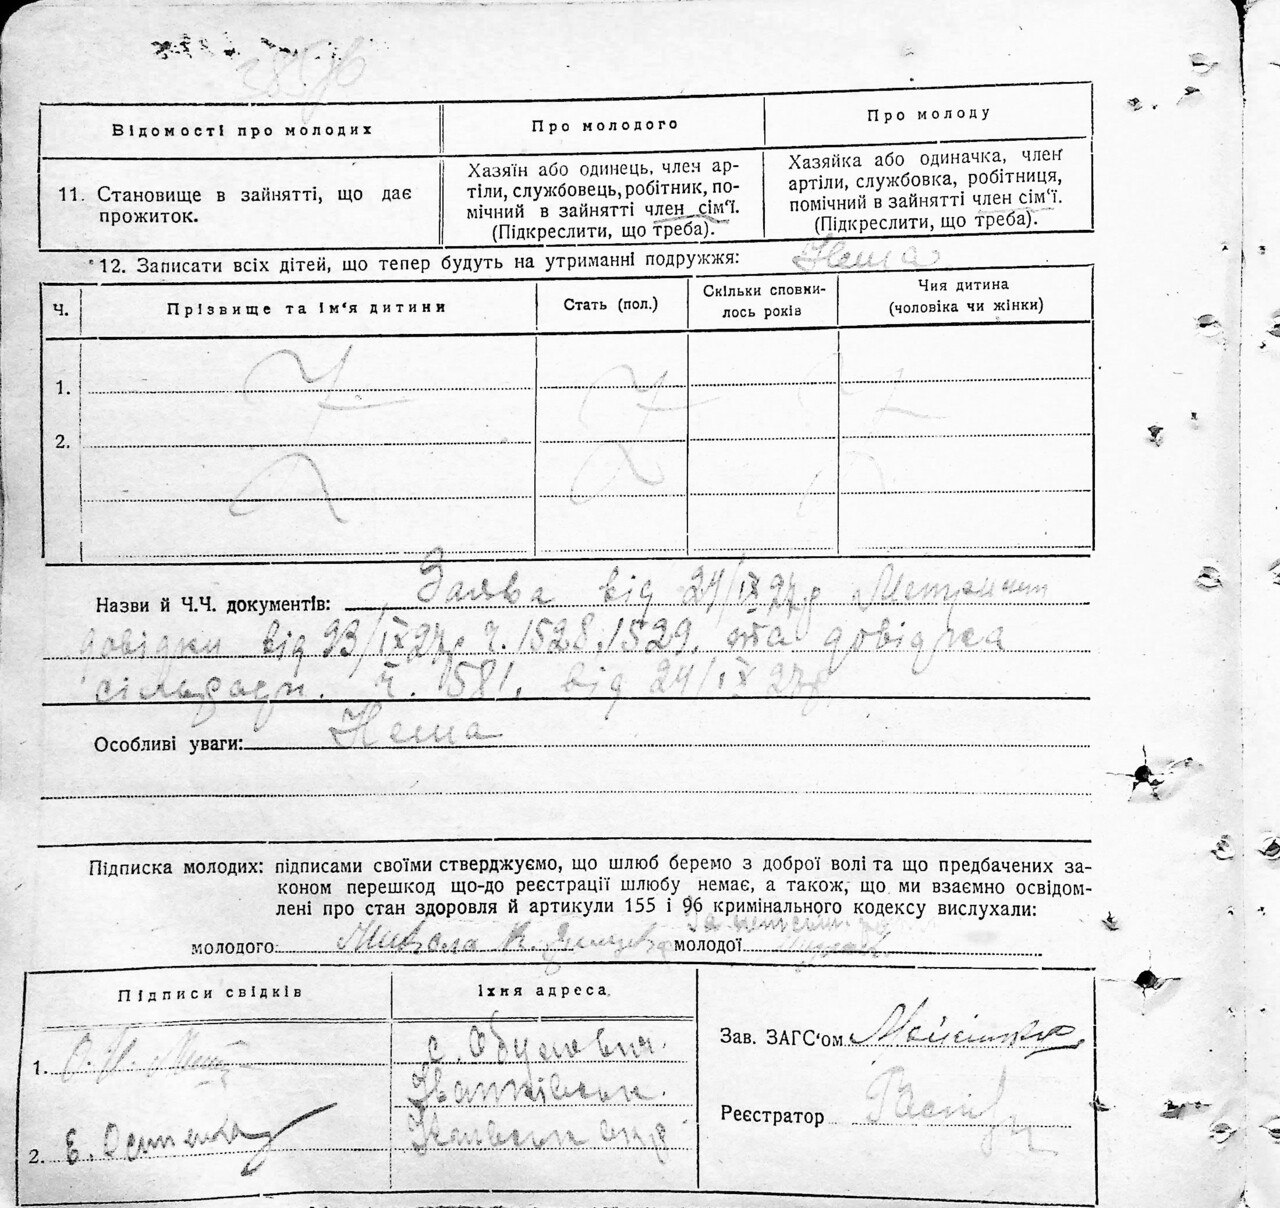 Відомості про молодих
Про молодого
Про молоду
11. Становище в зайнятті, що дає
прожиток.
Хазяїн або одинець, член ар-
тіли, службовець, робітник, по-
мічний в зайнятті член сім'ї.
(Підкреслити, що треба).
Хазяйка або одиначка, член
артіли, службовка, робітниця,
помічний в зайнятті член сім'ї.
(Підкреслити, що треба).
12. Записати всіх дітей, що тепер будуть на утриманні подружжя: Нема
Ч.
Прізвище та ім'я дитини
Стать (пол.)
Скільки сповни-
лось років
Чия дитина
(чоловіка чи жінки)
1.
2.
Назви й Ч.Ч. документів: Заява від 24/IX 27р
довідки від 23/IX 27р. ч. 1528. 1529. та довідка
сільради. ч. 1581. від 24/IX 27р
Особливі уваги: Нема
Підписка молодих: підписами своїми стверджуємо, що шлюб беремо з доброї волі та що предбачених за-
коном перешкод що-до реєстрації шлюбу немає, а також, що ми взаємно освідом-
лені про стан здоровля й артикули 155 і 96 кримінального кодексу вислухали:
молодого Микола К. молодої
Підписи свідків
Їхня адреса
1.
с. Обуховичі
Іванківськ.
2. Е. Остапенко
Зав. ЗАГС'ом
Реєстратор